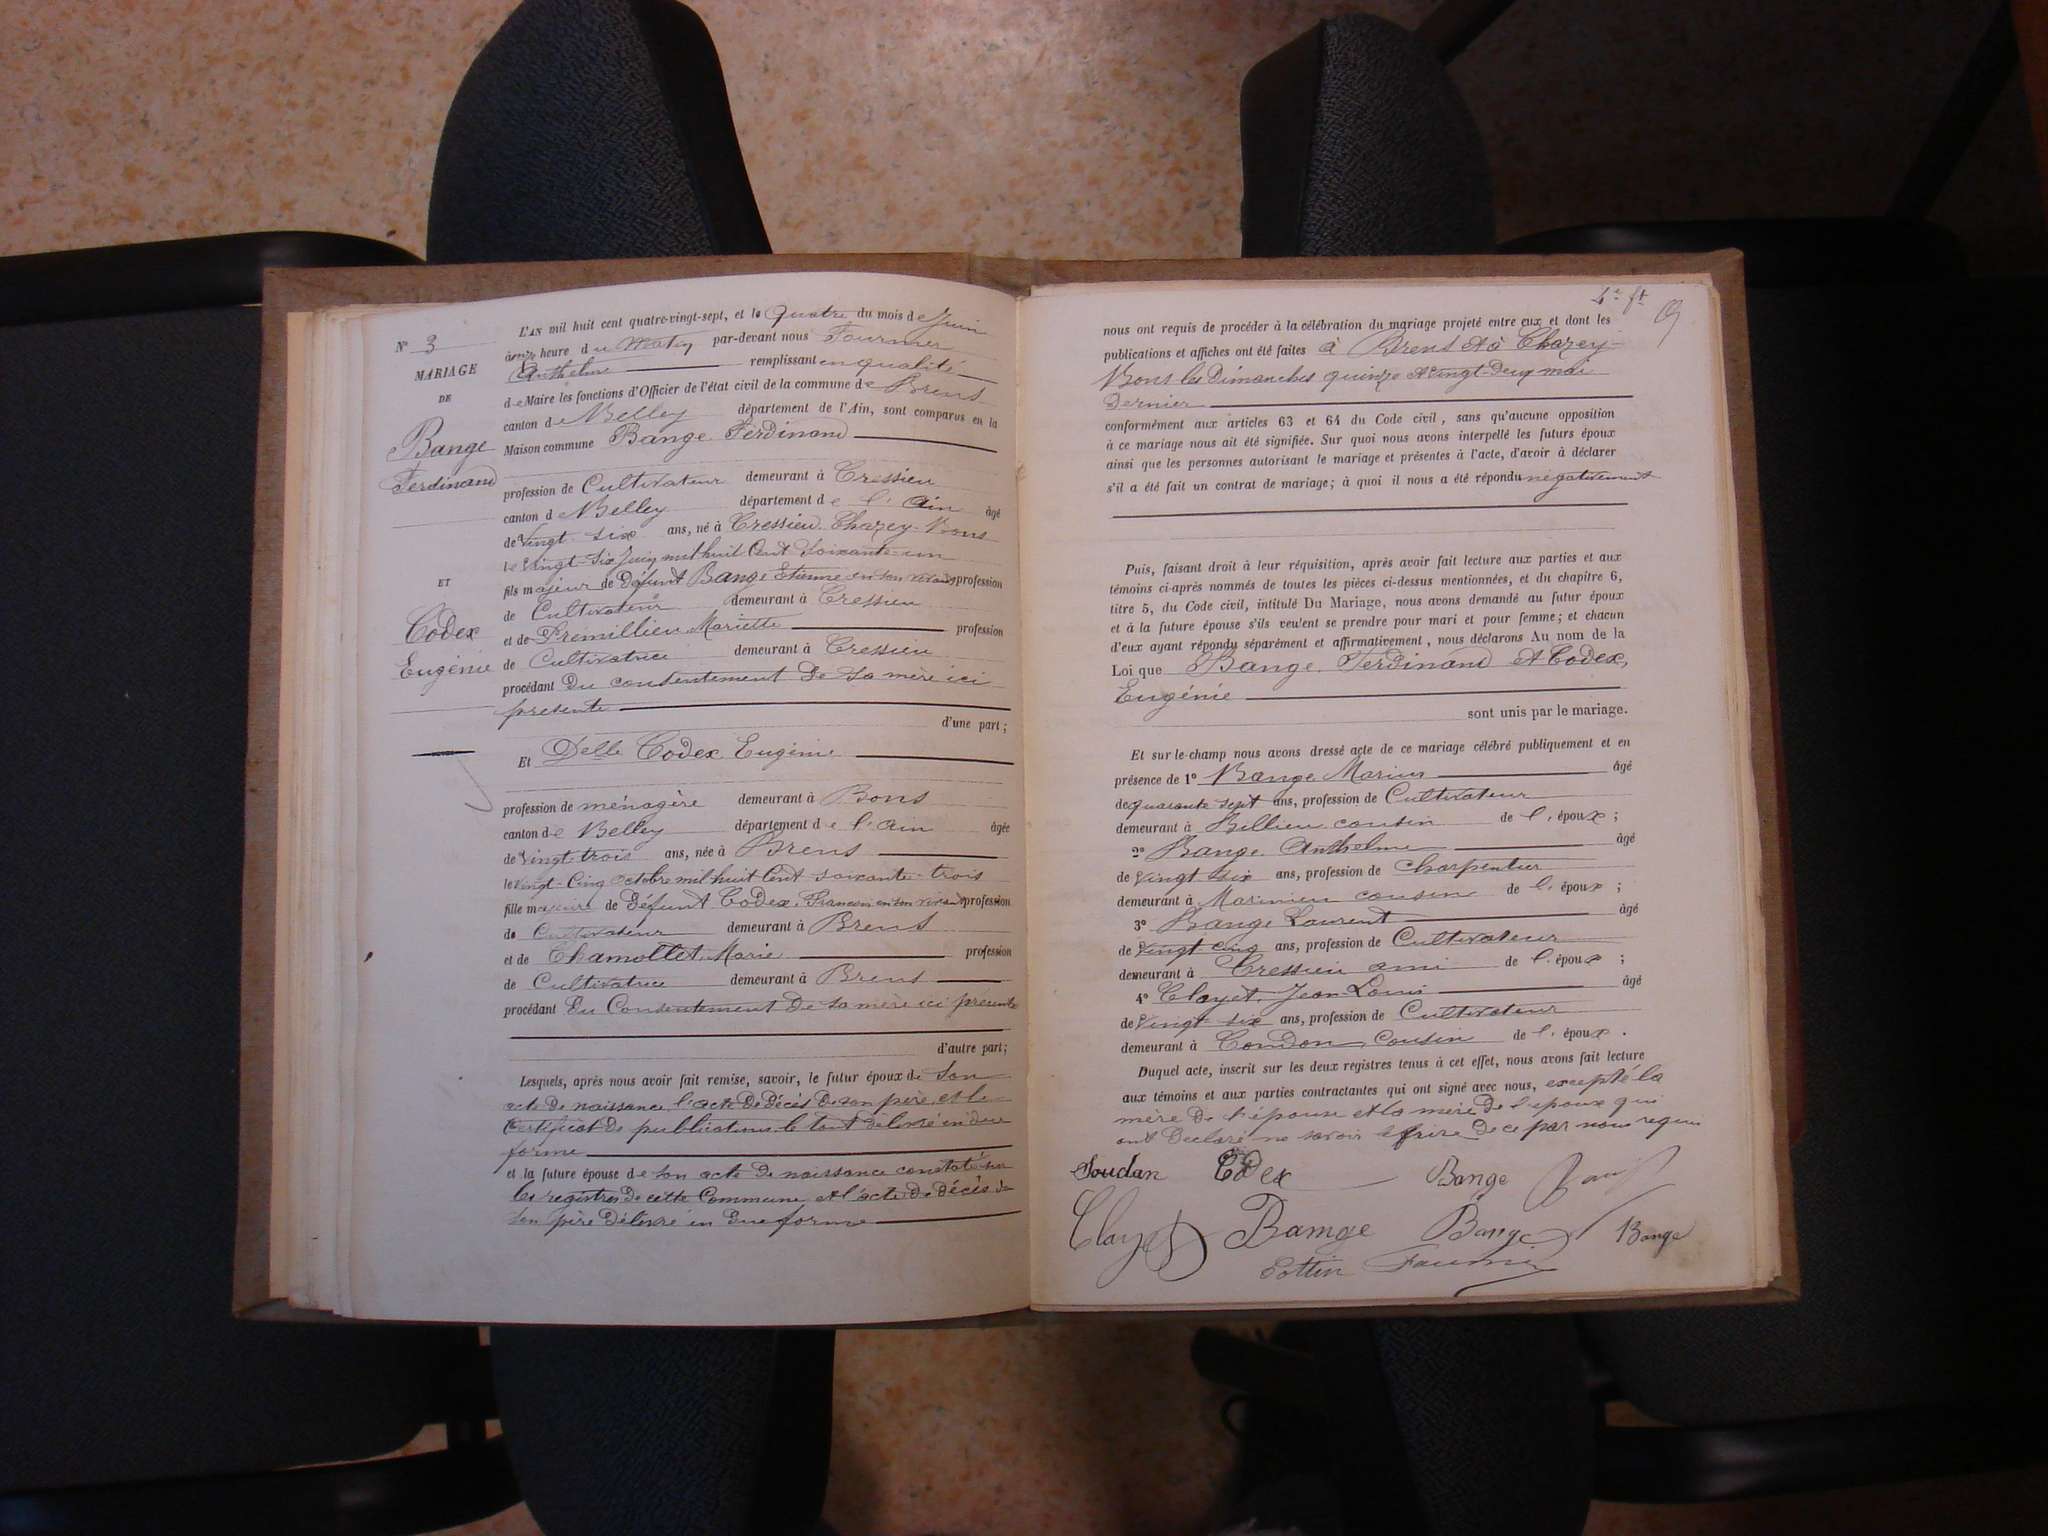 N° 3
MARIAGE
DE
Bange
Ferdinand
ET
Codex
Eugénie
L'AN mil huit cent quatre-vingt-sept, et le Quatre du mois de Juin
à onze heure du Matin par-devant nous Fournier
Anthelme remplissant en qualité
de Maire les fonctions d'Officier de l'état civil de la commune de Brens
canton de Belley département de l'Ain, sont comparus en la
Maison commune Bange Ferdinand
profession de Cultivateur demeurant à Cressieu
canton de Belley département de l'Ain âgé
de Vingt six ans, né à Cressieu Chazey-Bons
le Vingt-Six Juin mil huit Cent Soixante-un
fils majeur de Défunt Bange Etienne en son vivant profession
de Cultivateur demeurant à Cressieu
et de Prémillieu Mariette profession
de Cultivatrice demeurant à Cressieu
procédant Du consentement De Sa mère ici
présente
d'une part;
Et Delle Codex Eugénie
profession de ménagère demeurant à Bons
canton de Belley département de l'Ain âgée
de Vingt trois ans, née à Brens
le Vingt-Cinq Octobre mil huit Cent soixante-trois
fille majeure de Défunt Codex, François en son vivant profession
de Cultivateur demeurant à Brens
et de Chamollet Marie profession
de Cultivatrice demeurant à Brens
procédant Du Consentement De sa mère ici présente
d'autre part;
Lesquels, après nous avoir fait remise, savoir, le futur époux de Son
acte De naissance, l'acte De Décès De son père, et le
Certificat De publications le tout Délivré en due
forme
et la future épouse de son acte De naissance constaté sur
les registres De cette Commune et l'acte De Décès De
son père Délivré en Due forme
nous ont requis de procéder à la célébration du mariage projeté entre eux et dont les
publications et affiches ont été faites à Brens et à Chazey-
Bons les Dimanches quinze et vingt-Deux mai
Dernier
conformément aux articles 63 et 64 du Code civil, sans qu'aucune opposition
à ce mariage nous ait été signifiée. Sur quoi nous avons interpellé les futurs époux
ainsi que les personnes autorisant le mariage et présentes à l'acte, d'avoir à déclarer
s'il a été fait un contrat de mariage; à quoi il nous a été répondu négativement
Puis, faisant droit à leur réquisition, après avoir fait lecture aux parties et aux
témoins ci-après nommés de toutes les pièces ci-dessus mentionnées, et du chapitre 6,
titre 5, du Code civil, intitulé Du Mariage, nous avons demandé au futur époux
et à la future épouse s'ils veulent se prendre pour mari et pour femme; et chacun
d'eux ayant répondu séparément et affirmativement, nous déclarons Au nom de la
Loi que Bange Ferdinand Et Codex,
Eugénie
sont unis par le mariage.
Et sur-le-champ nous avons dressé acte de ce mariage célébré publiquement et en
présence de 1° Bange Marius âgé
de quarante sept ans, profession de Cultivateur
demeurant à Billieu cousin de l'époux;
2° Bange Anthelme âgé
de Vingt six ans, profession de Charpentier
demeurant à Marinieu cousin de l'époux;
3° Bange Laurent âgé
de Vingt cinq ans, profession de Cultivateur
demeurant à Cressieu ami de l'époux;
4° Clayet, Jean Louis âgé
de Vingt six ans, profession de Cultivateur
demeurant à Condon, cousin de l'époux.
Duquel acte, inscrit sur les deux registres tenus à cet effet, nous avons fait lecture
aux témoins et aux parties contractantes qui ont signé avec nous, excepté la
mère De l'épouse et la mère De l'époux qui
ont Déclaré ne savoir le faire De ce par nous requis
Soudan Codex Bange
Clayet Bange Bange Bange
Pottin Fournier